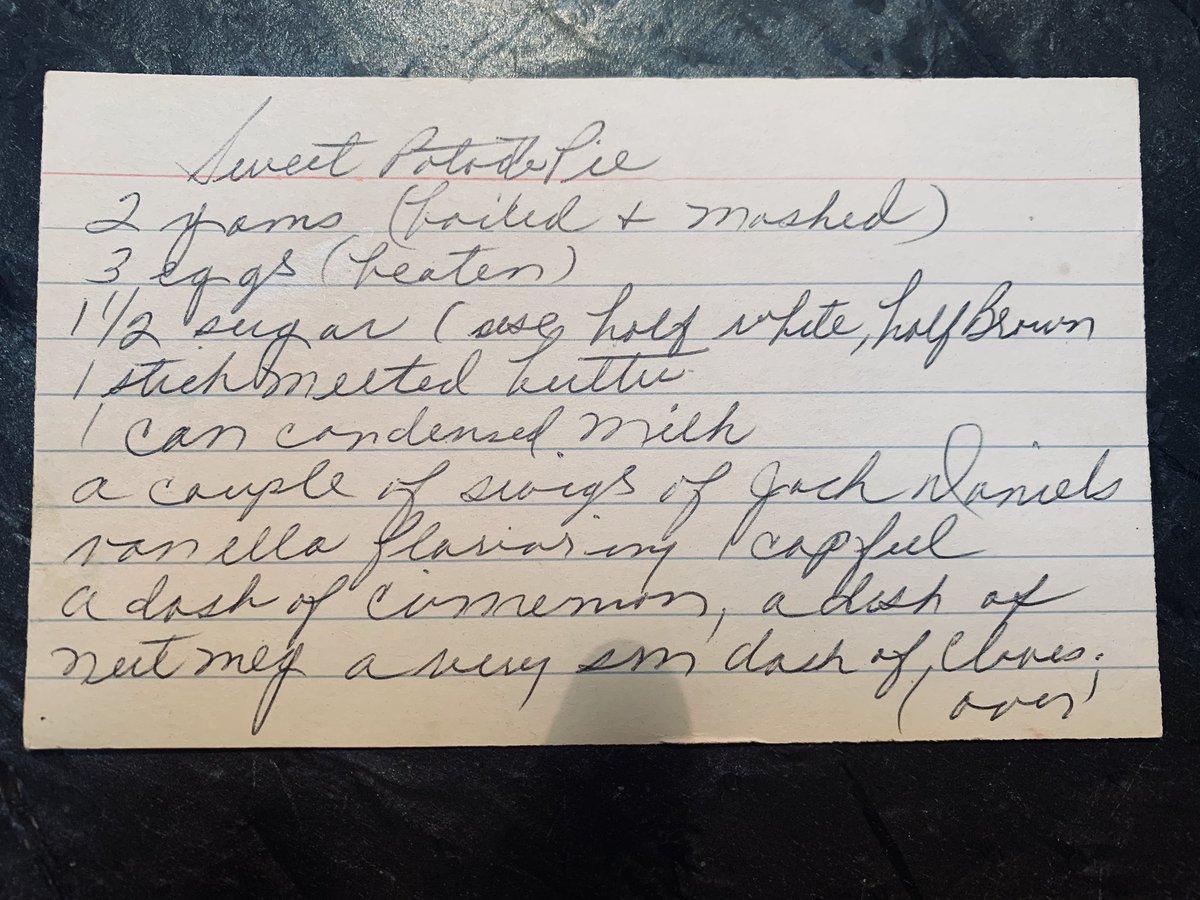 Sweet Potatoe Pie
2 yams (boiled + mashed)
3 eggs (beaten)
1 1/2 sugar (use half white, half Brown
1 stick melted butter
1 can condensed milk
a couple of swigs of Jack Daniels
vanilla flavoring 1 capful
a dash of cinnemon, a dash of
nutmeg a very sm dash of cloves.
(over)